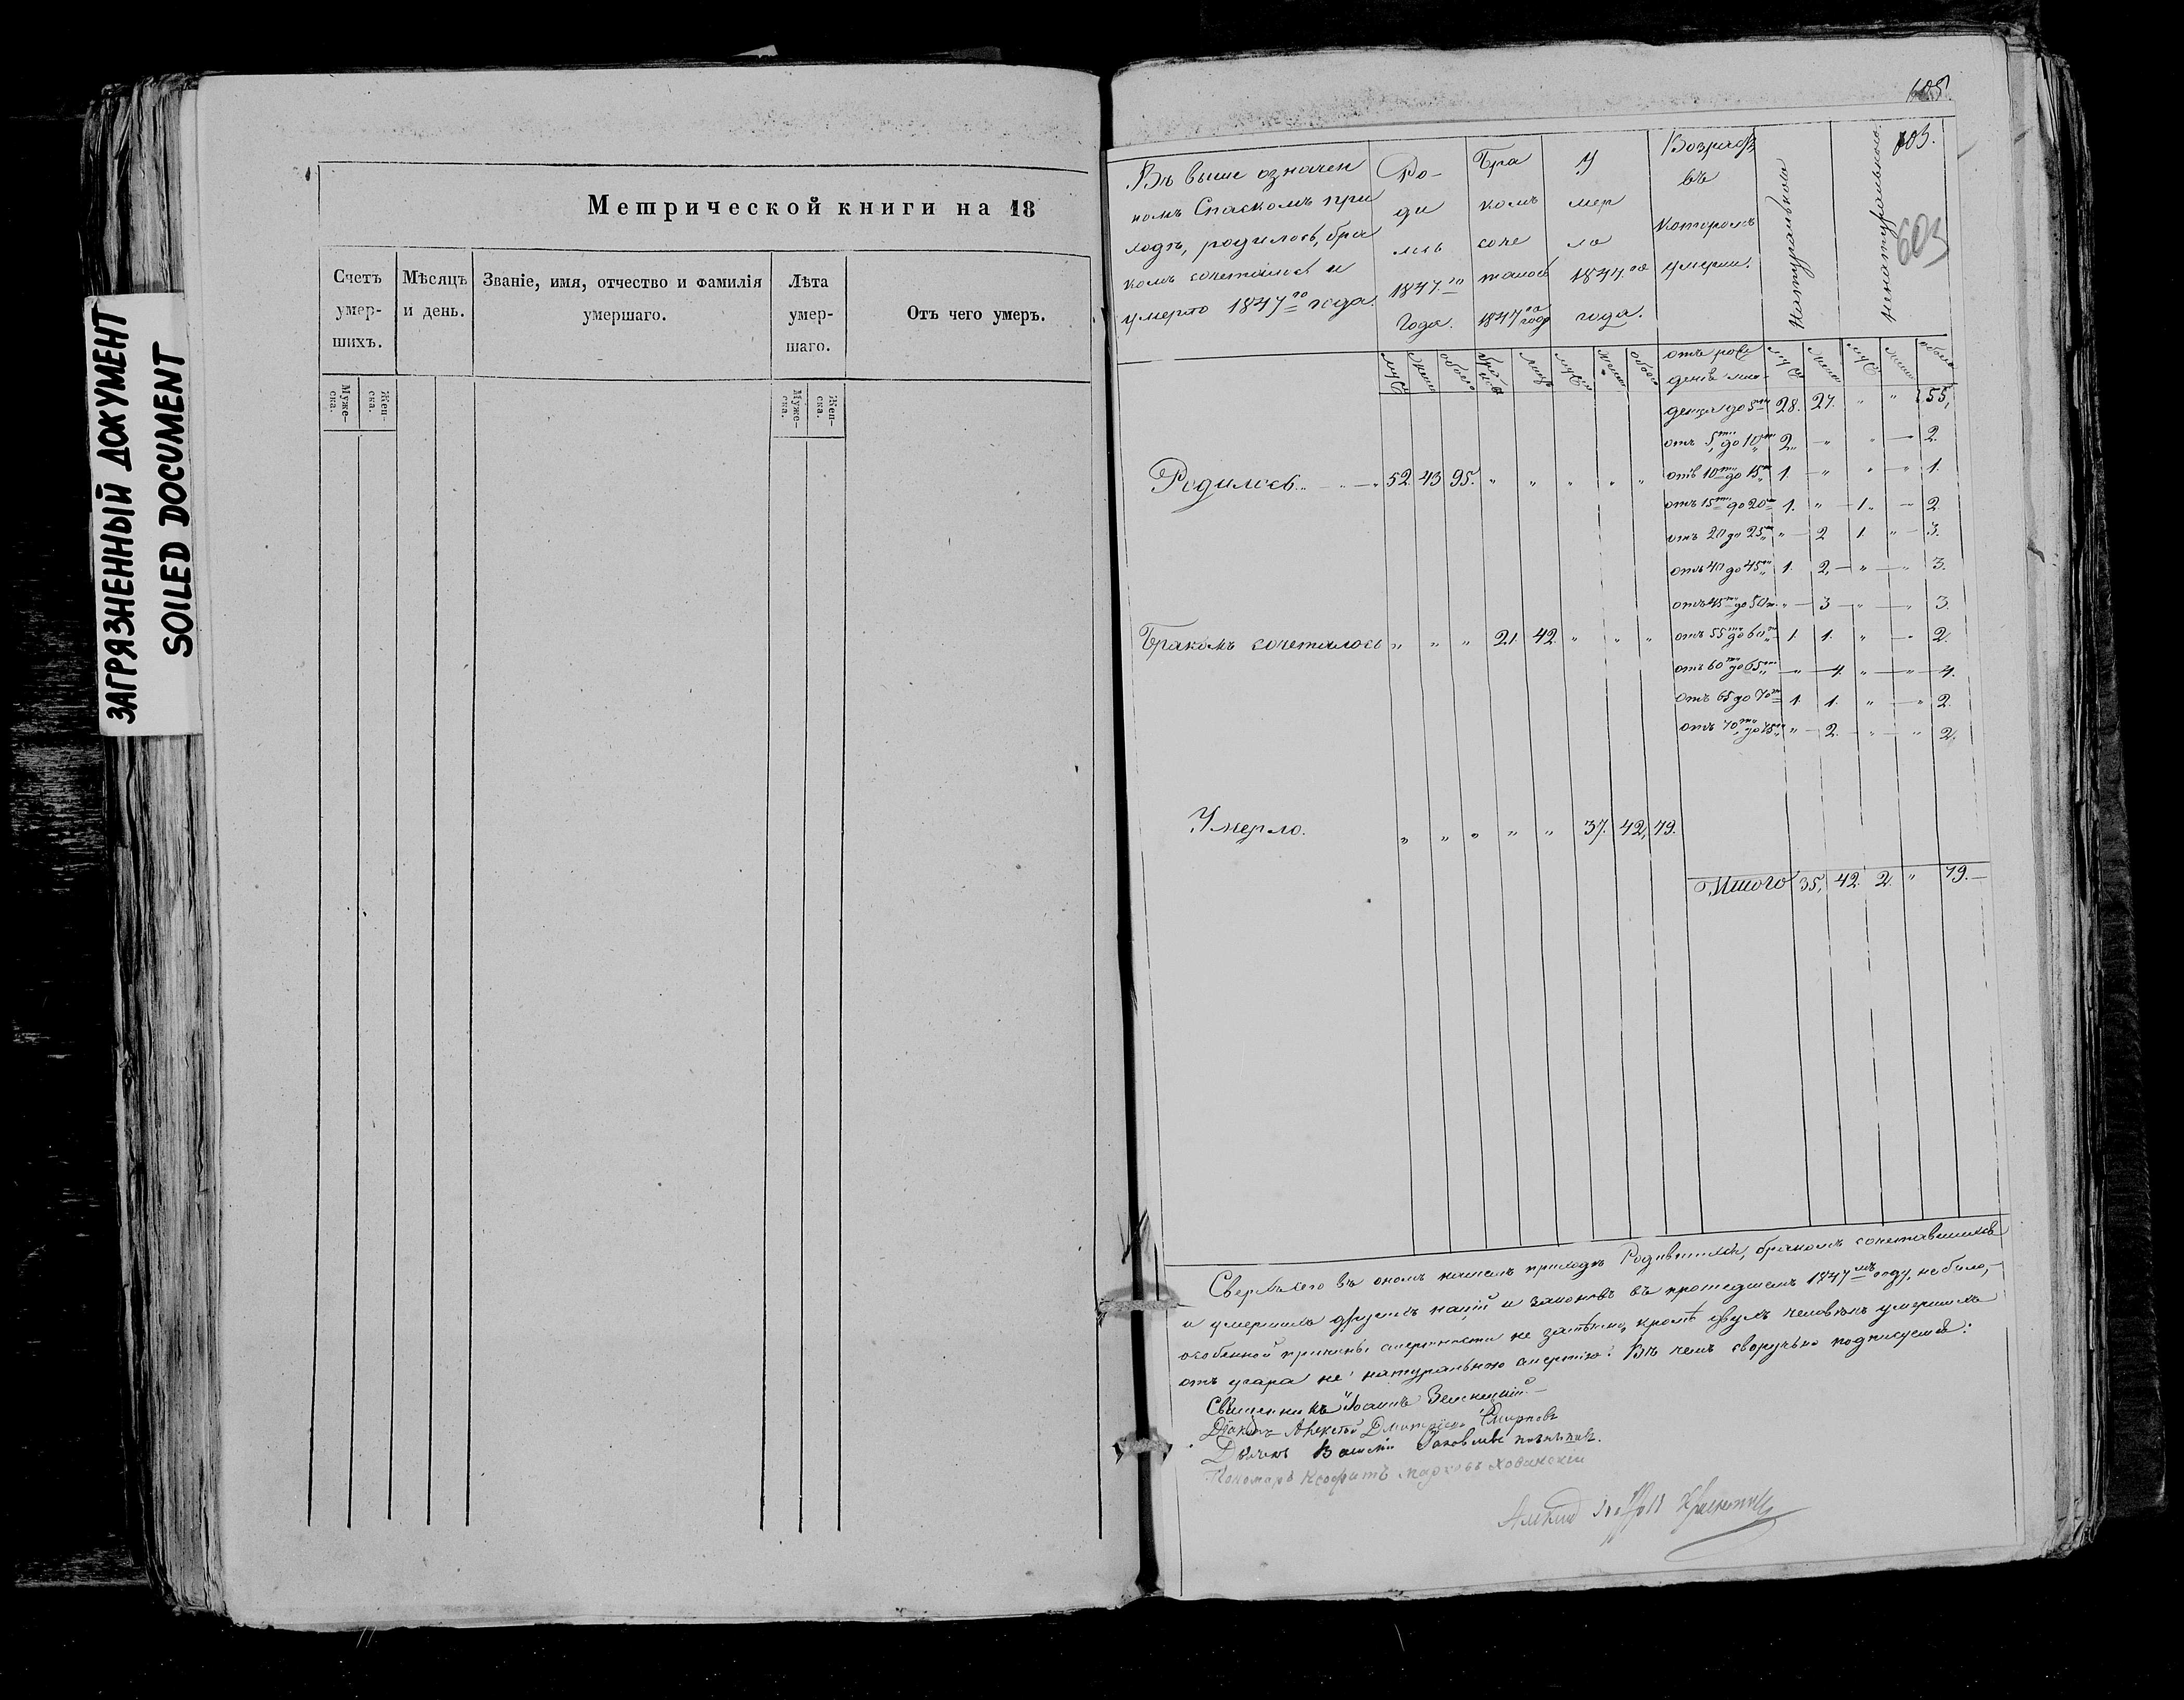 ЗАГРЯЗНЕННЫЙ ДОКУМЕНТ
SOILED DOCUMENT
Метрической книги на 18
Счетъ умер-шихъ.
Мѣсяцъ и день.
Званіе, имя, отчество и фамилія умершаго.
Лѣта умер-шаго.
Отъ чего умеръ.
Муже-ска.
Жен-ска.
Муже-ска.
Жен-ска.
603.
603
Въ выше означен
номъ Спаскомъ при
ходѣ, родилось, бра
комъ сочеталось и
умерло 1847го года.
Ро-
ди
лось
1847го
Года.
Бра
комъ
соче
талось
1847го года
У
мер
ло
1847го
года.
Возрастъ
въ
которомъ
умерли.
Натуральною
ненатуральною.
муж жен обоего
муж жен обоего
отъ рож
денія мла-
денцы до 5ти 28. 27. " " 55,
отъ 5ти до 10ти 2 " " — 2.
отъ 10ти до 15ти 1. — " " — " 1.
отъ 15ти до 20ти 1. " — 1. " — 2.
отъ 20 до 25ти " — 2 1. " — 3.
отъ 40 до 45ти 1. 2, — " — " 3.
отъ 45ти до 50ти " — 3 — " — " 3.
отъ 55ти до 60ти 1. 1. " — " 2.
отъ 60ти до 65ти — " — 4. " — " — 4.
отъ 65 до 70ти 1. 1. " — " 2.
отъ 70ти до 75ти " — 2. — " — " 2.
Родилось. — " — " 52. 43 95. " " " " "
Бракомъ сочеталось " " " 21. 42. " " "
Умерло. " " " " " 37. 42, 79.
Итого 35, 42. 2. " 79. —
Сверхъ сего въ ономъ нашемъ приходѣ Родившихся, бракомъ сочетавшихся
и умершихъ другихъ націй и законовъ въ прошедшемъ 1847мъ году, не было,—
особенной причины смертности не замѣчено, кромѣ двухъ человѣкъ умершихъ
отъ угара не натуральною смертію. Въ чемъ своручьно подписуемся:
Священникъ Іоаннъ
Діаконъ Алексѣй Дмитріевъ Смирновъ
Дьячекъ Василій Яковлевъ
Пономарь Ксофитъ Марковъ Хованскій